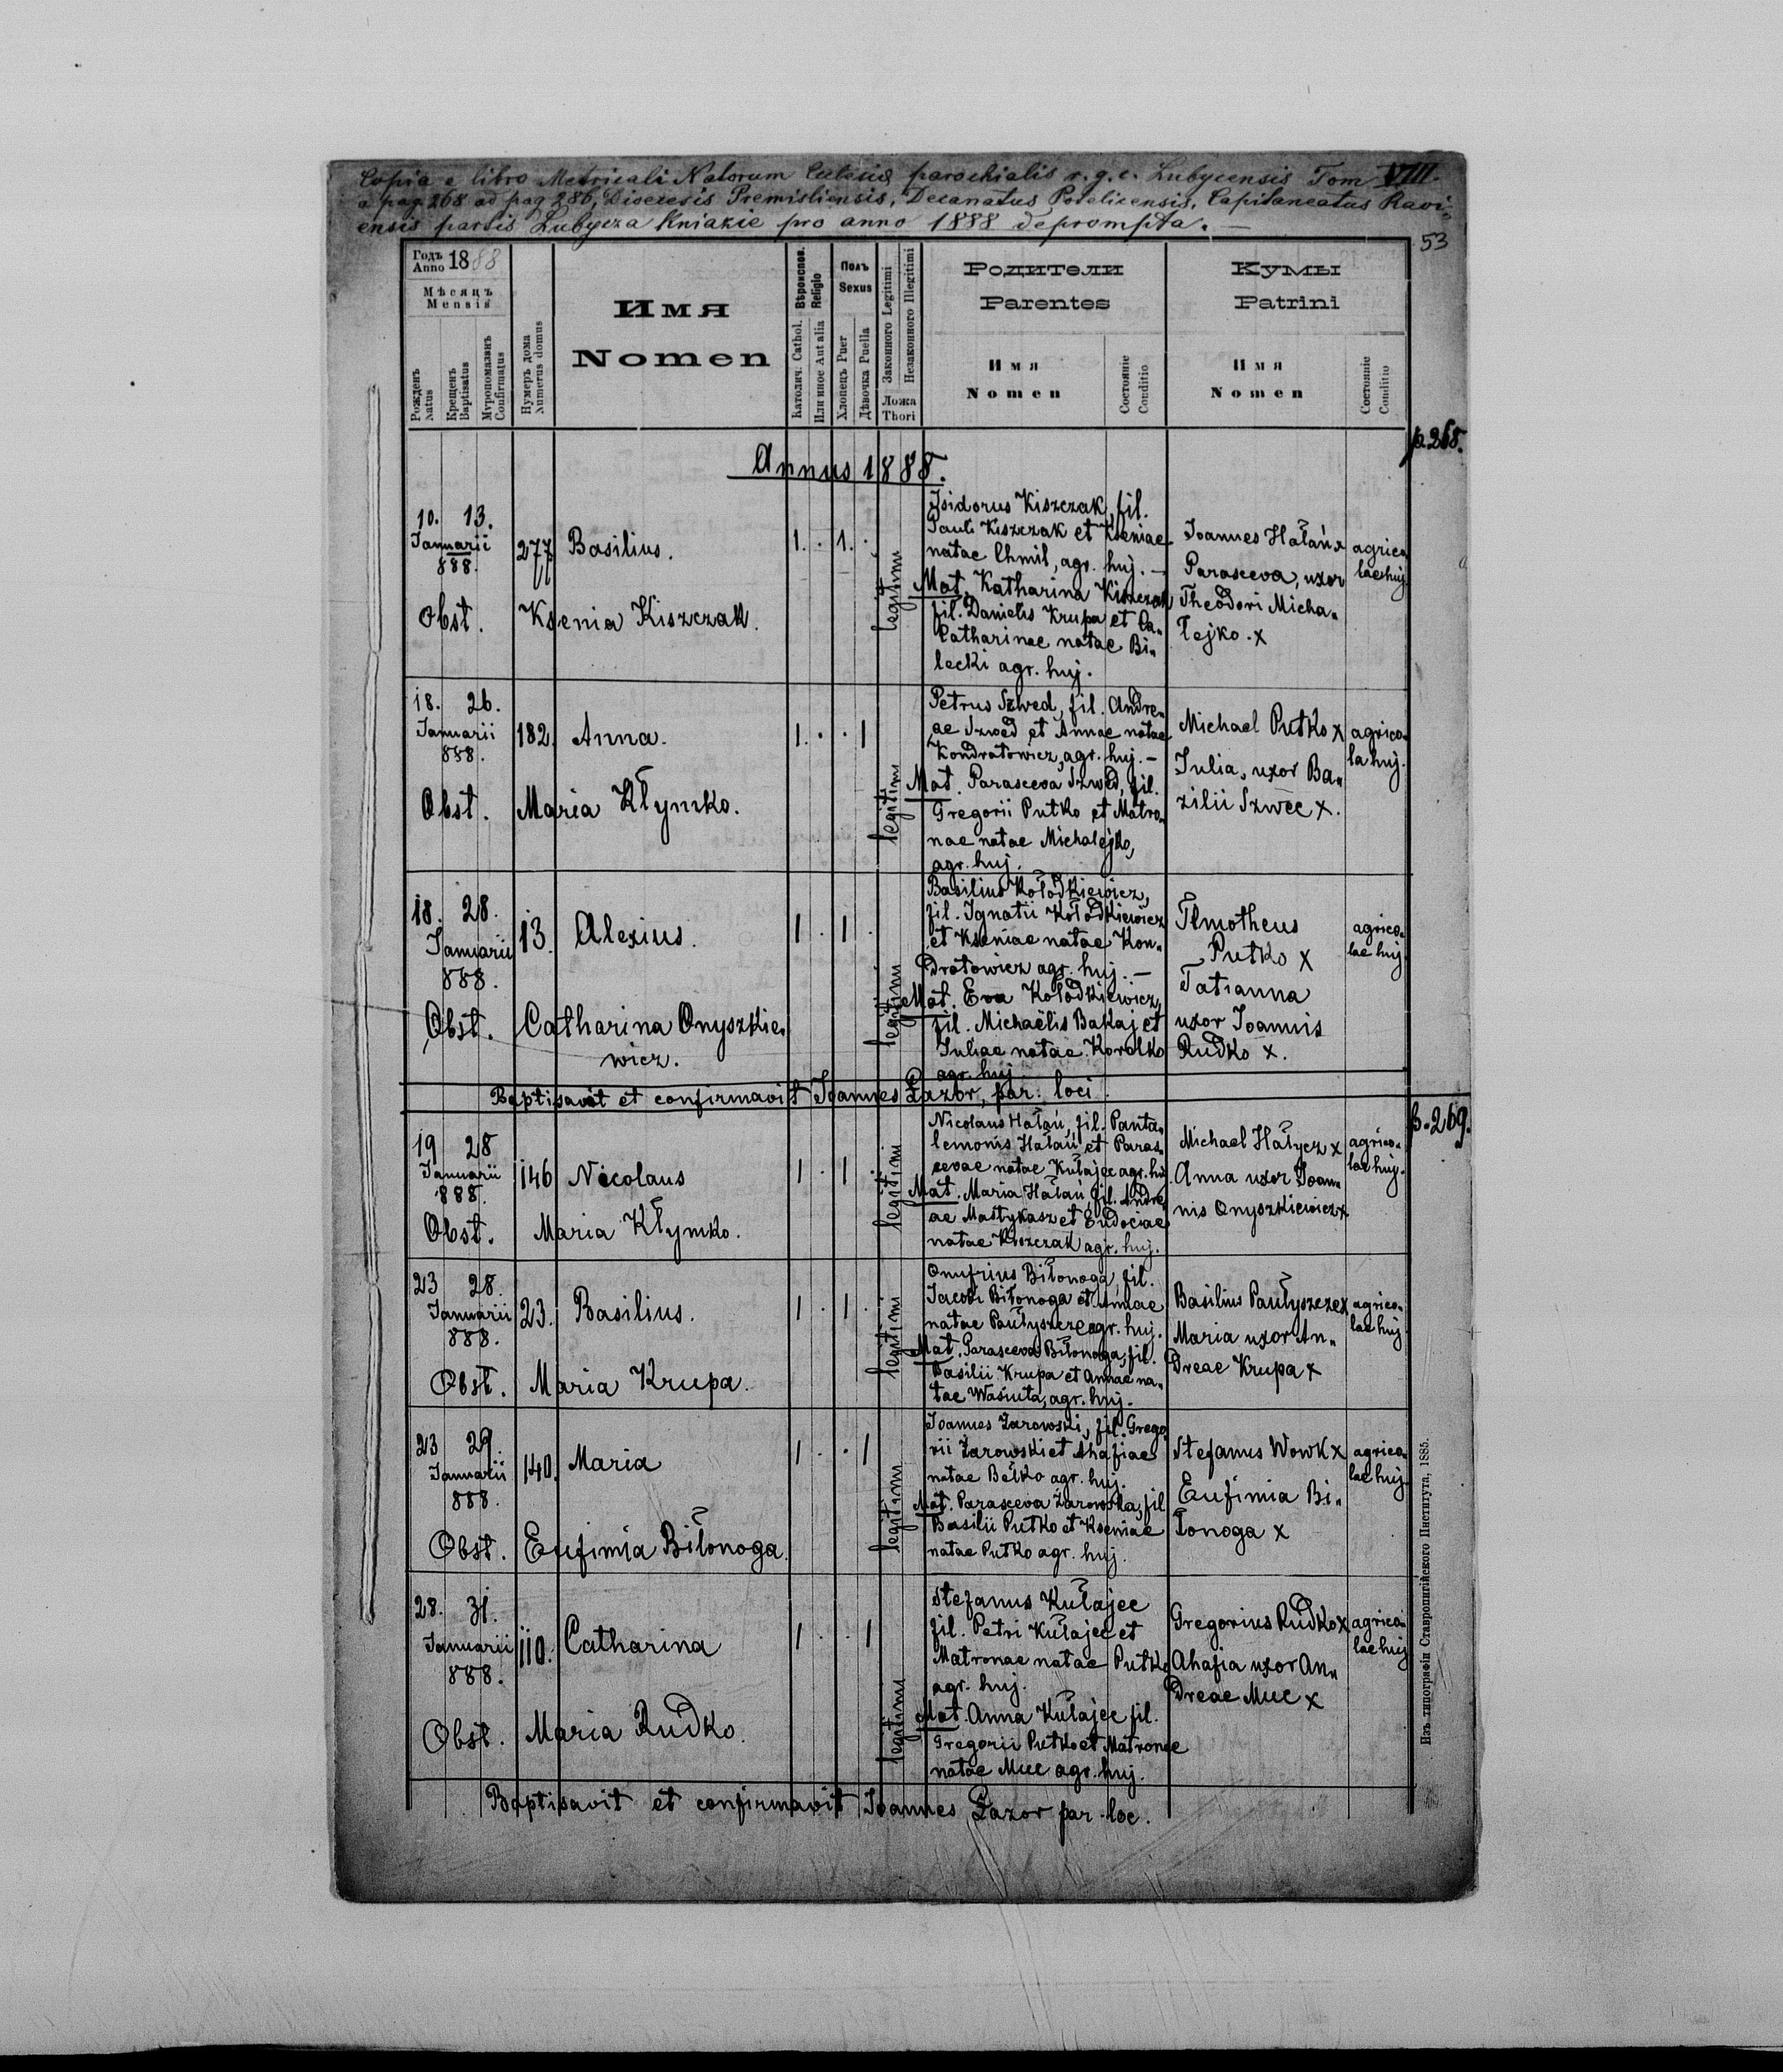 Copia e libro Metricali Natorum Ecclesiae parochialis r. g. c. Lubycensis Tom VIII.
a pag. 268 ad pag 286, Dioecesis Premisliensis, Decanatus Potelicensis, Capitaneatus Ravi„
ensis partis Lubycza Kniazie pro anno 1888 deprompta. —
53
Годъ Anno 1888
Мѣсяцъ Mensis
Рожденъ Natus
Крещенъ Baptisatus
Муропомазанъ Confirmatus
Нумеръ дома Numerus domus
Имя
Nomen
Вѣроиспов. Religio
Католич. Cathol.
Или иное Aut alia
Полъ Sexus
Хлопецъ Puer
Дѣвочка Puella
Законного Legitimi
Незаконного Illegitimi
Ложа Thori
Родители
Parentes
Имя
Nomen
Состояніе Conditio
Кумы
Patrini
Имя
Nomen
Состояніе Conditio
p. 268.
Annus 1888.
10. 13.
Januarii
888.
277
Basilius.
1. . 1. .
legitimi
Isidorus Kiszczak, fil.
Pauli Kiszczak et Kseniae
natae Chmil, agr. huj. —
Mat. Katharina Kiszczak
fil. Danielis Krupa et Ca„
Catharinae natae Bi„
lecki agr. huj.
Joannes Hałań x
Parasceva, uxor
Theodori Micha„
łejko. x
agrico„
lae huj.
Obst. Ksenia Kiszczak.
18. 26.
Januarii
888.
182.
Anna.
1. . . 1
legitimi
Petrus Szwed, fil. Andre„
ae Szwed et Annae natae
Kondratowicz, agr. huj. —
Mat. Parasceva Szwed, fil.
Gregorii Putko et Matro„
nae natae Michalejko,
agr. huj.
Michael Putko x
Julia, uxor Ba„
zilii Szwec x.
agrico„
la huj.
Obst. Maria Kłymko.
18. 28.
Januarii
888.
13.
Alexius.
1 . 1 .
legitimi
Basilius Kołodkiewicz,
fil. Ignatii Kołodkiewicz
et Kseniae natae Kon„
dratowicz agr. huj. —
Mat. Eva Kołodkiewicz,
fil. Michaëlis Bakaj et
Juliae natae Korolko
agr. huj.
Timotheus
Putko x
Tatianna
uxor Joannis
Rudko x.
agrico„
lae huj.
Obst. Catharina Onyszkie„
wicz.
Baptisavit et confirmavit Joannes Łazor, par. loci.
p. 269.
19 28
Januarii
888.
146
Nicolaus
1 . 1
legitimi
Nicolaus Hałań, fil. Panta„
lemonis Hałań et Paras„
cevae natae Kułajec agr. huj.
Mat. Maria Hałań, fil. Andre„
ae Mastykasz et Eudociae
natae Kiszczak agr. huj.
Michael Hałycz x
Anna uxor Joan„
nis Onyszkiewicz x
agrico„
lae huj.
Obst. Maria Kłymko.
23 28.
Januarii
888.
23.
Basilius.
1 . 1 .
legitimi
Onufrius Biłonoga, fil.
Jacobi Biłonoga et Annae
natae Pałyszcze agr. huj.
Mat. Parasceva Biłonoga, fil.
Basilii Krupa et Annae na„
tae Wasiuta, agr. huj.
Basilius Pałyszcze x
Maria uxor An„
dreae Krupa x
agrico„
lae huj
Obst. Maria Krupa.
23 29.
Januarii
888.
140.
Maria
1 . . 1
legitimi
Joannes Żarowski, fil. Grego„
rii Żarowski et Ahafiae
natae Bełko agr. huj.
Mat. Parasceva Żarowska, fil
Basilii Putko et Kseniae
natae Putko agr. huj.
Stefanus Wowk x
Eufimia Bi„
łonoga x
agrico„
lae huj.
Obst. Eufimia Biłonoga.
28. 31.
Januarii
888.
110.
Catharina
1 . . 1
legitimi
Stefanus Kułajec
fil. Petri Kułajec et
Matronae natae Putko
agr. huj.
Mat. Anna Kułajec fil.
Gregorii Putko et Matronae
natae Muc agr. huj.
Gregorius Rudko x
Ahafia uxor An„
dreae Muc x
agrico„
lae huj
Obst. Maria Rudko.
Baptisavit et confirmavit Joannes Łazor par. loc.
Изъ типографіи Ставропигійского Института, 1885.